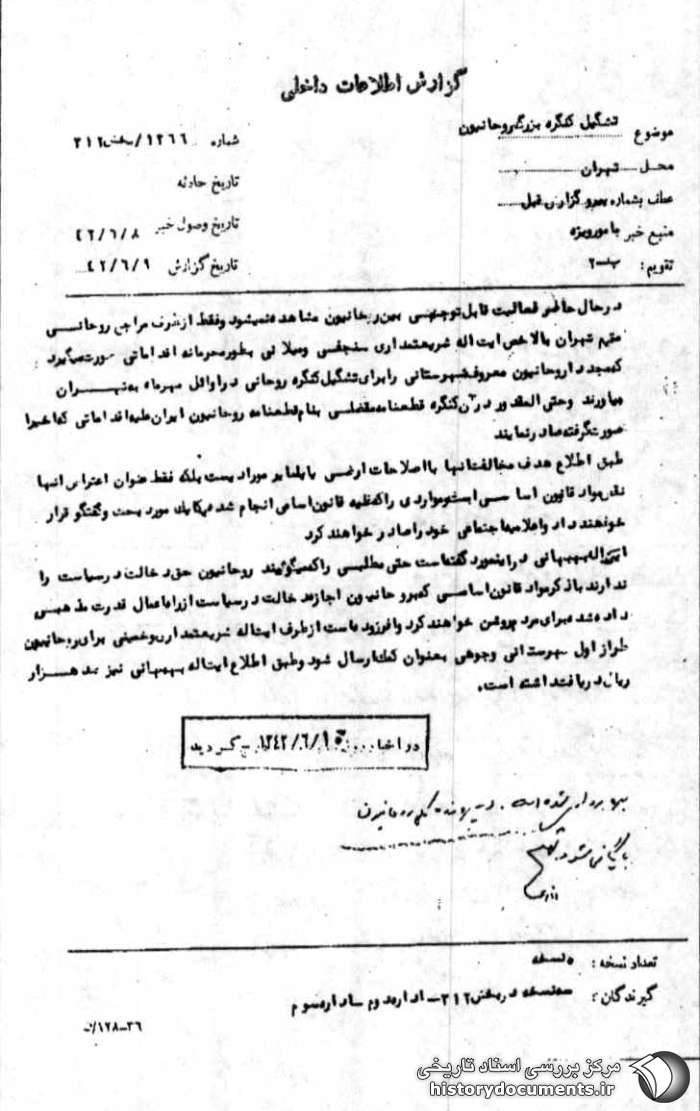 گزارش اطلاعات داخلی
موضوع تشکیل کنگره بزرگ روحانیون
شماره ۱۲۶۶/بخش ۳۱۲
محل تهران
تاریخ حادثه
عطف بشماره پیرو گزارش قبل
تاریخ وصول خبر ۴۲/۶/۸
منبع خبر مامور ویژه
تاریخ گزارش ۴۲/۶/۹
تقویم: ب-۲
در حال حاضر فعالیت قابل توجهی بین روحانیون مشاهده نمیشود وفقط از طرف مراجع روحانسی
مقیم تهران بالاخص ایت اله شریعتمداری نجفی ومیلانی بطور محرمانه اقداماتی صورت میگیرد
که مجددا روحانیون معروف شهرستانی را برای تشکیل کنگره روحانی در اوائل مهرماه به تهران
بیاورند وحتی المقدور در آن کنگره قطعنامه مفصلی بنام قطعنامه روحانیون ایران علیه اقداماتی که اخیرا
صورت گرفته صادر نمایند
طبق اطلاع هدف مخالفت آنها با اصلاحات ارضی یا سایر موارد نیست بلکه فقط عنوان اعتراض انها
نقض مواد قانون اساسی است ومواردی را که علیه قانون اساسی انجام شده یکایک مورد بحث وگفتگو قرار
خواهند داد واعلامیه اجتماعی خود را صادر خواهند کرد
ایت اله بهبهانی در اینمورد گفته است حتی مطلبی را که میگویند روحانیون حق دخالت در سیاست را
ندارند با ذکر مواد قانون اساسی که بروحانیون اجازه دخالت در سیاست از راه اعمال قدرت مذهبی
داده شده برای مردم روشن خواهند کرد وافزوده است از طرف ایت اله شریعتمداری وخمینی برای روحانیون
طراز اول شهرستانی وجوهی بعنوان کمک ارسال شود وطبق اطلاع ایت اله بهبهانی نیز صد هزار
ریال دریافت داشته است.
در اخبار روز ۱۳۴۲/۶/۱۵ درج گردید
بهره برداری شده است. در پرونده کنگره روحانیون
بایگانی شود
تعداد نسخه: ۵ نسخه
گیرندگان: سه نسخه در بخش ۳۱۲ - اداره دوم - اداره سوم
۳۶-۱۲۸/
مرکز بررسی اسناد تاریخی
historydocuments.ir